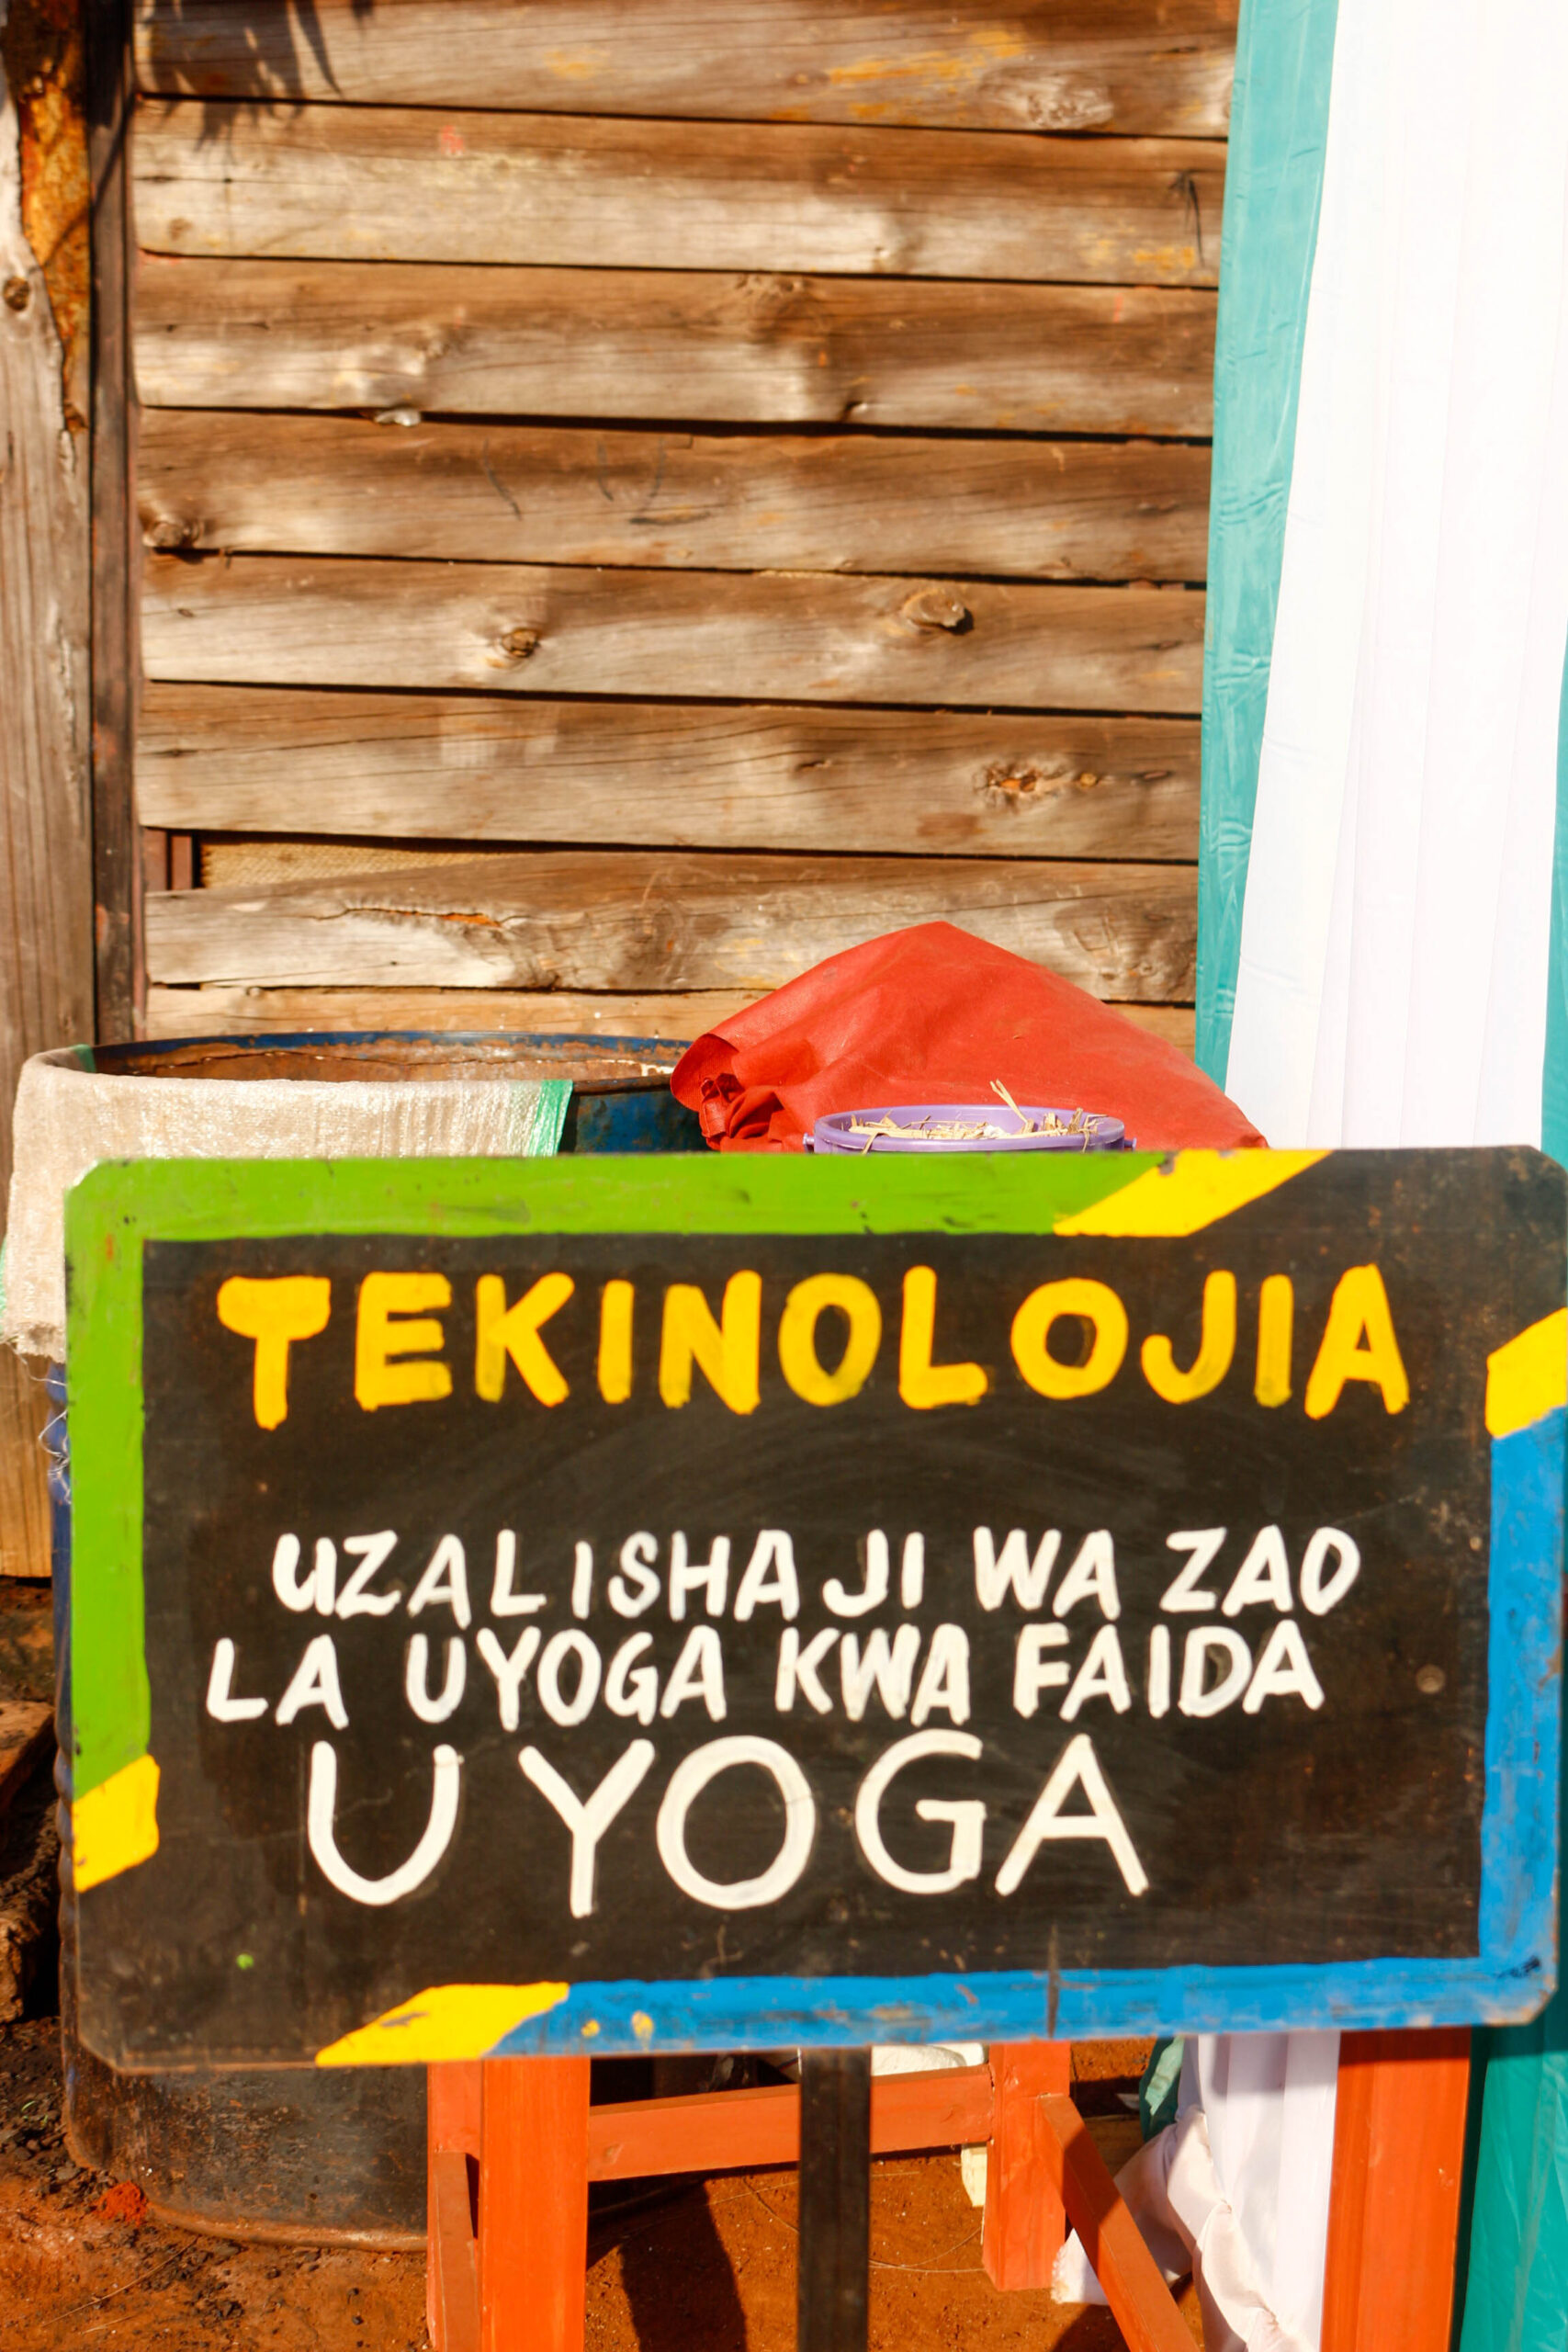 TEKINOLOJIA
UZALISHAJI WA ZAO
LA UYOGA KWA FAIDA
UYOGA